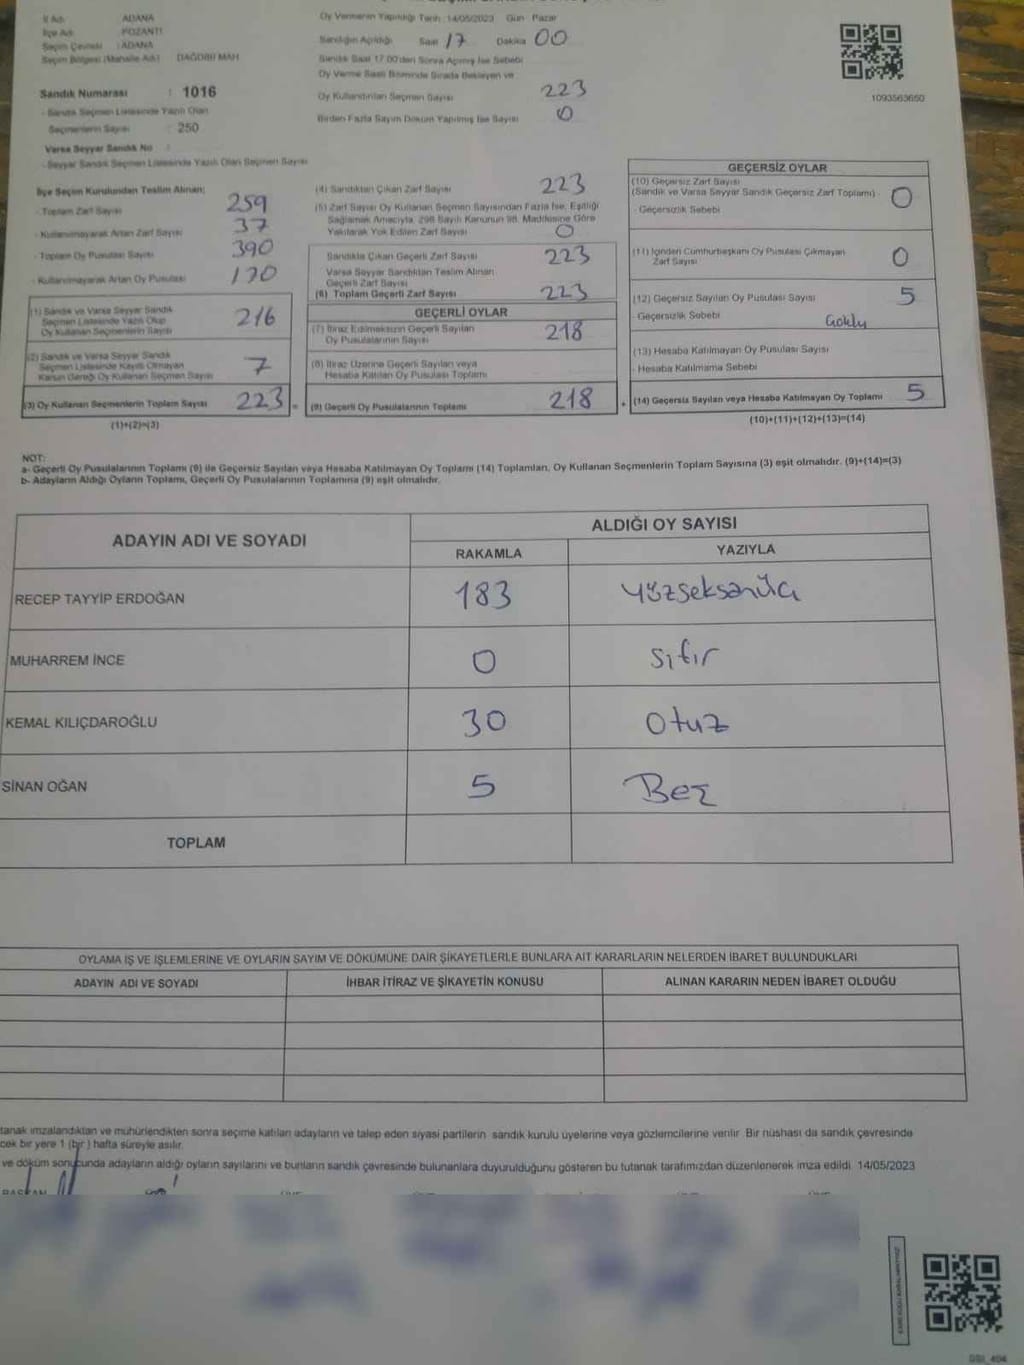 İl Adı : ADANA
İlçe Adı : POZANTI
Seçim Çevresi : ADANA
Seçim Bölgesi (Mahalle Adı) : DAĞDİBİ MAH.
Sandık Numarası : 1016
- Sandık Seçmen Listesinde Yazılı Olan
Seçmenlerin Sayısı : 250
Varsa Seyyar Sandık No :
- Seyyar Sandık Seçmen Listesinde Yazılı Olan Seçmen Sayısı
Oy Vermenin Yapıldığı Tarih : 14/05/2023 Gün : Pazar
Sandığın Açıldığı Saat 17 Dakika 00
Sandık Saat 17.00'den Sonra Açılmış İse Sebebi
Oy Verme Saati Bitiminde Sırada Bekleyen ve
Oy Kullandırılan Seçmen Sayısı 223
Birden Fazla Sayım Döküm Yapılmış İse Sayısı 0
1093563650
İlçe Seçim Kurulundan Teslim Alınan;
- Toplam Zarf Sayısı 259
- Kullanılmayarak Artan Zarf Sayısı 37
- Toplam Oy Pusulası Sayısı 390
- Kullanılmayarak Artan Oy Pusulası 170
(1) Sandık ve Varsa Seyyar Sandık
Seçmen Listesinde Yazılı Olup
Oy Kullanan Seçmenlerin Sayısı 216
(2) Sandık ve Varsa Seyyar Sandık
Seçmen Listesinde Kayıtlı Olmayan
Kanun Gereği Oy Kullanan Seçmen Sayısı 7
(3) Oy Kullanan Seçmenlerin Toplam Sayısı 223 =
(1)+(2)=(3)
(4) Sandıktan Çıkan Zarf Sayısı 223
(5) Zarf Sayısı Oy Kullanan Seçmen Sayısından Fazla İse, Eşitliği
Sağlamak Amacıyla, 298 Sayılı Kanunun 98. Maddesine Göre
Yakılarak Yok Edilen Zarf Sayısı 0
Sandıkta Çıkan Geçerli Zarf Sayısı 223
Varsa Seyyar Sandıktan Teslim Alınan
Geçerli Zarf Sayısı
(6) Toplam Geçerli Zarf Sayısı 223
GEÇERLİ OYLAR
(7) İtiraz Edilmeksizin Geçerli Sayılan
Oy Pusulalarının Sayısı 218
(8) İtiraz Üzerine Geçerli Sayılan veya
Hesaba Katılan Oy Pusulası Toplamı
(9) Geçerli Oy Pusulalarının Toplamı 218 +
GEÇERSİZ OYLAR
(10) Geçersiz Zarf Sayısı
(Sandık ve Varsa Seyyar Sandık Geçersiz Zarf Toplamı) 0
- Geçersizlik Sebebi
(11) İçinden Cumhurbaşkanı Oy Pusulası Çıkmayan
Zarf Sayısı 0
(12) Geçersiz Sayılan Oy Pusulası Sayısı 5
Geçersizlik Sebebi
(13) Hesaba Katılmayan Oy Pusulası Sayısı
- Hesaba Katılmama Sebebi
(14) Geçersiz Sayılan veya Hesaba Katılmayan Oy Toplamı 5
(10)+(11)+(12)+(13)=(14)
NOT:
a- Geçerli Oy Pusulalarının Toplamı (9) ile Geçersiz Sayılan veya Hesaba Katılmayan Oy Toplamı (14) Toplamları, Oy Kullanan Seçmenlerin Toplam Sayısına (3) eşit olmalıdır. (9)+(14)=(3)
b- Adayların Aldığı Oyların Toplamı, Geçerli Oy Pusulalarının Toplamına (9) eşit olmalıdır.
ADAYIN ADI VE SOYADI ALDIĞI OY SAYISI
RAKAMLA YAZIYLA
RECEP TAYYİP ERDOĞAN 183 yüzseksenüç
MUHARREM İNCE 0 Sıfır
KEMAL KILIÇDAROĞLU 30 Otuz
SİNAN OĞAN 5 Beş
TOPLAM
OYLAMA İŞ VE İŞLEMLERİNE VE OYLARIN SAYIM VE DÖKÜMÜNE DAİR ŞİKAYETLERLE BUNLARA AİT KARARLARIN NELERDEN İBARET BULUNDUKLARI
ADAYIN ADI VE SOYADI İHBAR İTİRAZ VE ŞİKAYETİN KONUSU ALINAN KARARIN NEDEN İBARET OLDUĞU
tanak imzalandıktan ve mühürlendikten sonra seçime katılan adayların ve talep eden siyasi partilerin sandık kurulu üyelerine veya gözlemcilerine verilir. Bir nüshası da sandık çevresinde
cek bir yere 1 (bir) hafta süreyle asılır.
ve döküm sonucunda adayların aldığı oyların sayılarını ve bunların sandık çevresinde bulunanlara duyurulduğunu gösteren bu tutanak tarafımızdan düzenlenerek imza edildi. 14/05/2023
BAŞKAN